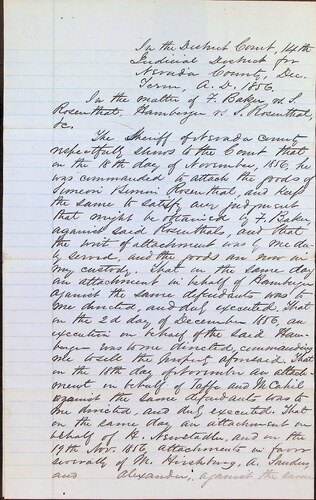 In the District Court, 14th
Judicial District for
Nevada County, Dec.
Term, A. D. 1856.
In the matter of F. Baker vs S.
Rosenthal, Hamberger vs S. Rosenthal,
&c.
The Sheriff of Nevada county
respectfully shows to the Court that
on the 18th day of November, 1856, he
was commanded to attach the goods of
Simeon Rosenthal, and keep
the same to satisfy any judgment
that might be obtained by F. Baker
against said Rosenthals, and that
the writ of attachment was by me du-
ly served, and the goods are now in
my custody. That on the same day
an attachment in behalf of Hamberger
against the same defendants was to
me directed, and duly executed. That
on the 2d day of December 1856, an
execution in behalf of the said Ham-
berger was to me directed, commanding
me to sell the property aforesaid. That
on the 18th day of November an attach-
ment in behalf of Taffe and McCahil
against the same defendants was to
me directed, and duly executed. That
on the same day an attachment in
behalf of H. Newstadter, and on the
19th Nov. 1856, attachments in favor
severally of M. Hirshburg, A. Sanders
and Alexander, against the same